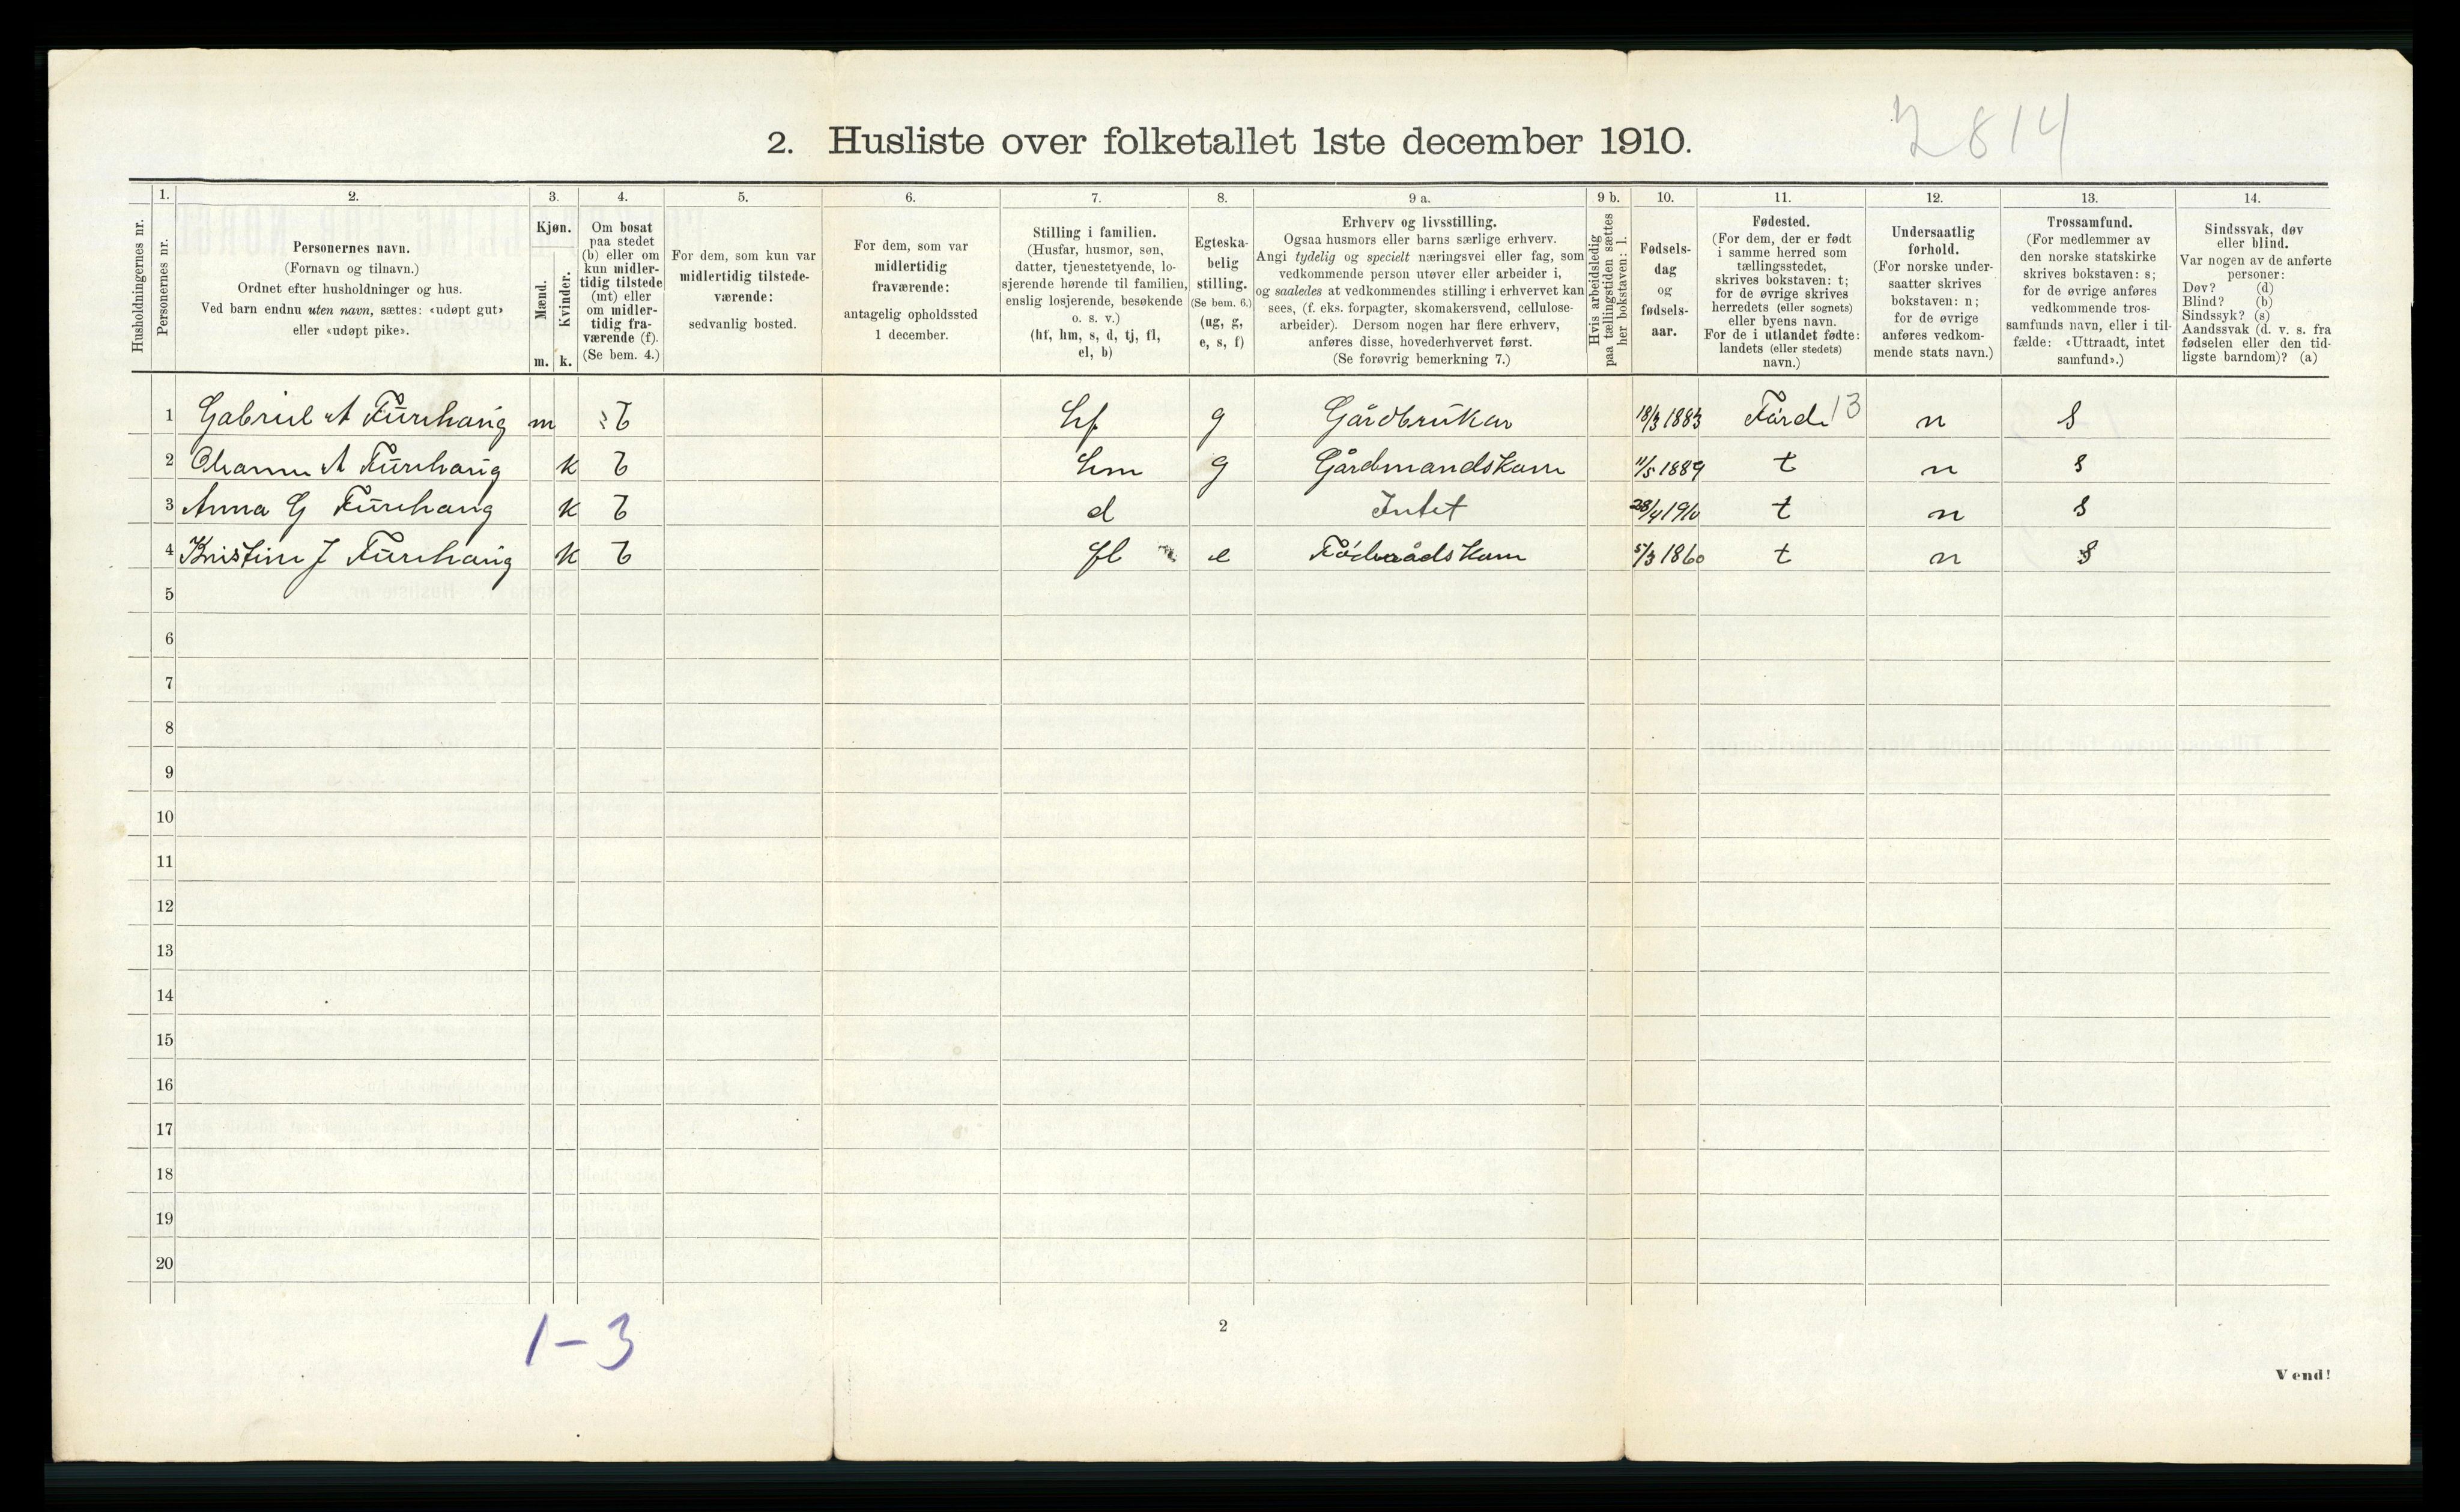 2814
2. Husliste over folketallet 1ste december 1910.
Husholdningernes nr.
1.
Personernes nr.
2.
Personernes navn.
(Fornavn og tilnavn.)
Ordnet efter husholdninger og hus.
Ved barn endnu uten navn, sættes: «udøpt gut»
eller «udøpt pike».
3.
Kjøn.
Mænd.
Kvinder.
m. k.
4.
Om bosat
paa stedet
(b) eller om
kun midler-
tidig tilstede
(mt) eller
om midler-
tidig fra-
værende (f).
(Se bem. 4.)
5.
For dem, som kun var
midlertidig tilstede-
værende:
sedvanlig bosted.
6.
For dem, som var
midlertidig
fraværende:
antagelig opholdssted
1 december.
7.
Stilling i familien.
(Husfar, husmor, søn,
datter, tjenestetyende, lo-
sjerende hørende til familien,
enslig losjerende, besøkende
o. s. v.)
(hf, hm, s, d, tj, fl,
el, b)
8.
Egteska-
belig
stilling.
(Se bem. 6.)
(ug, g,
e, s, f)
9 a.
Erhverv og livsstilling.
Ogsaa husmors eller barns særlige erhverv.
Angi tydelig og specielt næringsvei eller fag, som
vedkommende person utøver eller arbeider i,
og saaledes at vedkommendes stilling i erhvervet kan
sees, (f. eks. forpagter, skomakersvend, cellulose-
arbeider). Dersom nogen har flere erhverv,
anføres disse, hovederhvervet først.
(Se forøvrig bemerkning 7.)
9 b.
Hvis arbeidsledig
paa tællingstiden sættes
her bokstaven: l.
10.
Fødsels-
dag
og
fødsels-
aar.
11.
Fødested.
(For dem, der er født
i samme herred som
tællingsstedet,
skrives bokstaven: t;
for de øvrige skrives
herredets (eller sognets)
eller byens navn.
For de i utlandet fødte:
landets (eller stedets)
navn.)
12.
Undersaatlig
forhold.
(For norske under-
saatter skrives
bokstaven: n;
for de øvrige
anføres vedkom-
mende stats navn.)
13.
Trossamfund.
(For medlemmer av
den norske statskirke
skrives bokstaven: s;
for de øvrige anføres
vedkommende tros-
samfunds navn, eller i til-
fælde: «Uttraadt, intet
samfund».)
14.
Sindssvak, døv
eller blind.
Var nogen av de anførte
personer:
Døv? (d)
Blind? (b)
Sindssyk? (s)
Aandssvak (d. v. s. fra
fødselen eller den tid-
ligste barndom)? (a)
1 Gabriel A Furehaug m b hf g Gårdbrukar 18/3 1883 Førde 13 n s
2 A Furehaug k b hm g Gårdmandskone 11/5 1889 t n s
3 Anna G Furehaug k b d Intet 28/4 1910 t n s
4 Kristine J Furehaug k b fl e Föderådskone 5/3 1860 t n s
5
6
7
8
9
10
11
12
13
14
15
16
17
18
19
20
1-3
2
Vend!